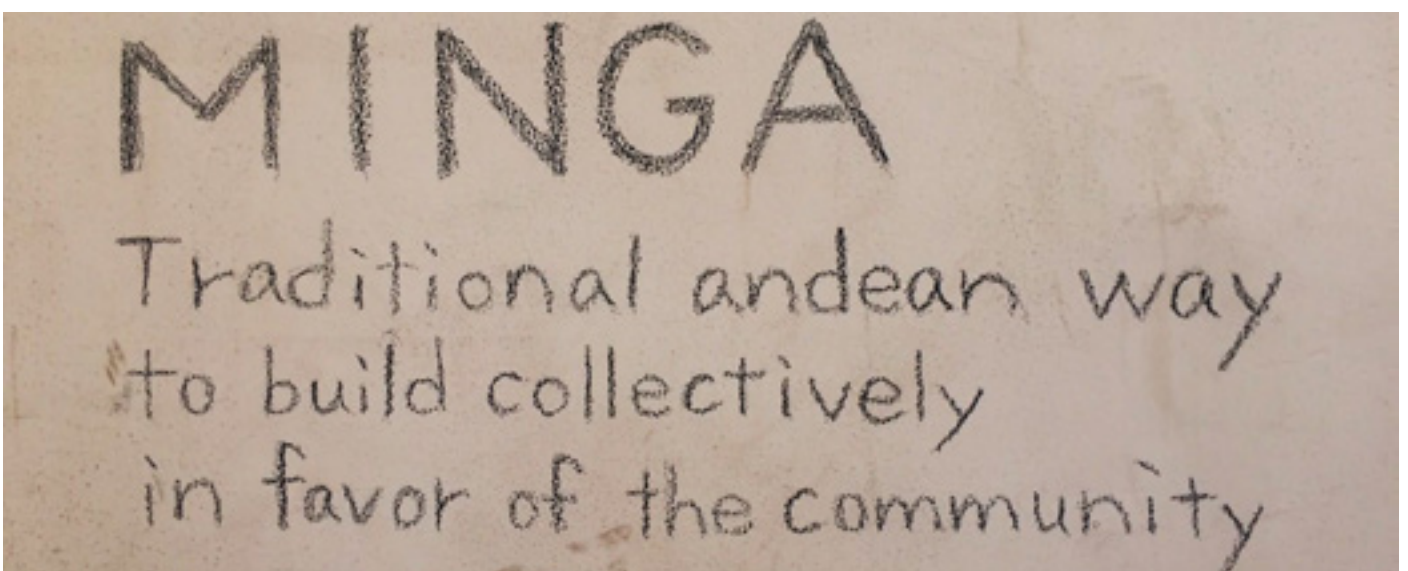 MINGA
Traditional andean way
to build collectively
in favor of the community